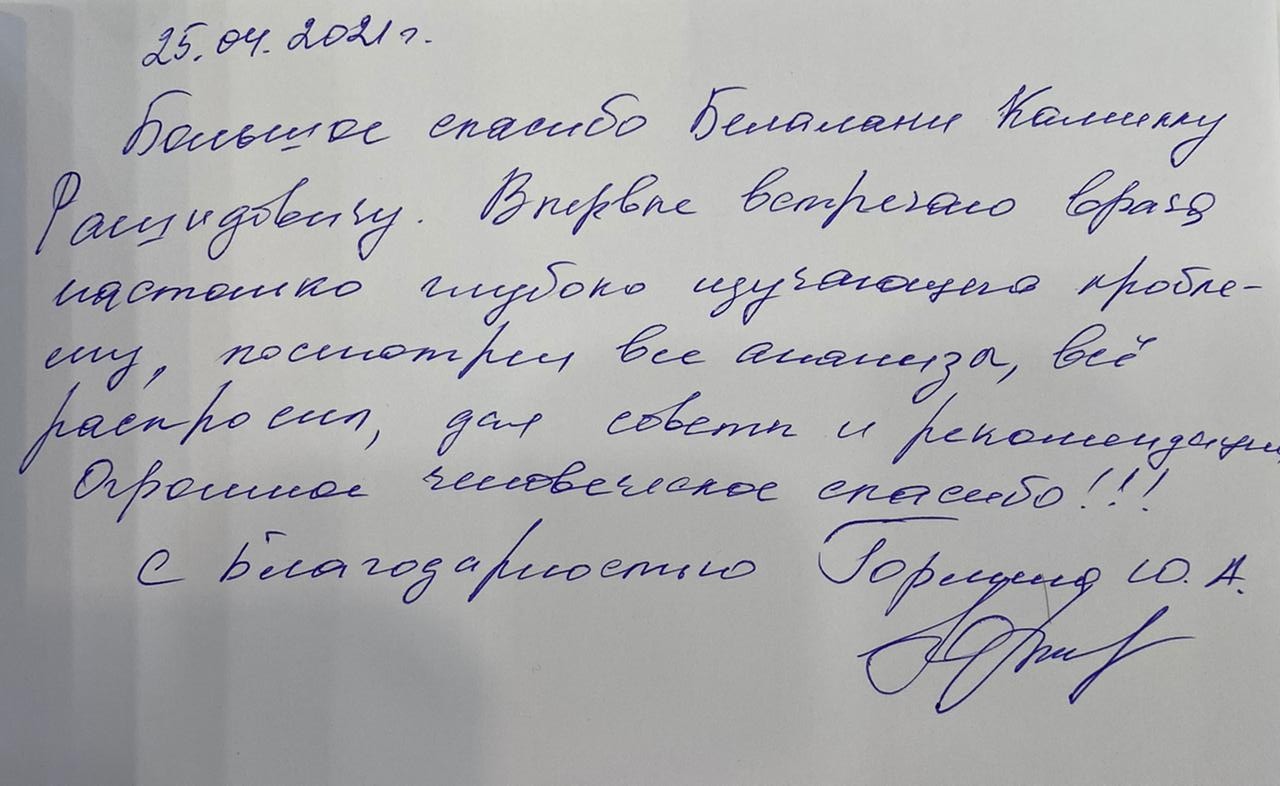 25.04.2021 г.
Большое спасибо Белалани Камилху
Рашидовичу. Впервые встречаю врача
настолько глубоко изучающего пробле-
му, посмотрел все анализы, всё
распросил, дал советы и рекомендации.
Огромное человеческое спасибо!!!
С благодарностью Ю. А.